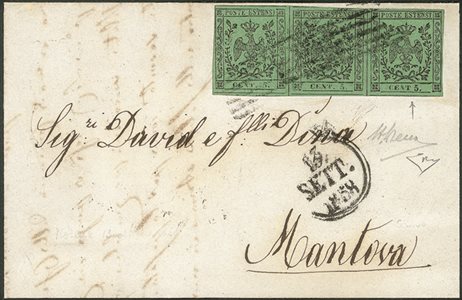 POSTE ESTENSI POSTE ESTENSI POSTE ESTENSI
CENT. 5. CENT. 5. CENT 5.
Sig.ri David e f.lli Dina
13
SETT.
1858
Mantova